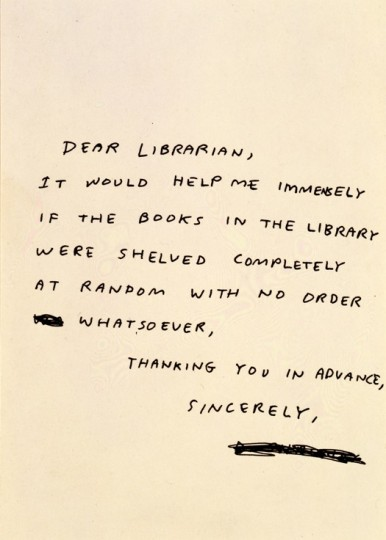 DEAR LIBRARIAN,
IT WOULD HELP ME IMMENSELY
IF THE BOOKS IN THE LIBRARY
WERE SHELVED COMPLETELY
AT RANDOM WITH NO ORDER
WHATSOEVER,
THANKING YOU IN ADVANCE,
SINCERELY,